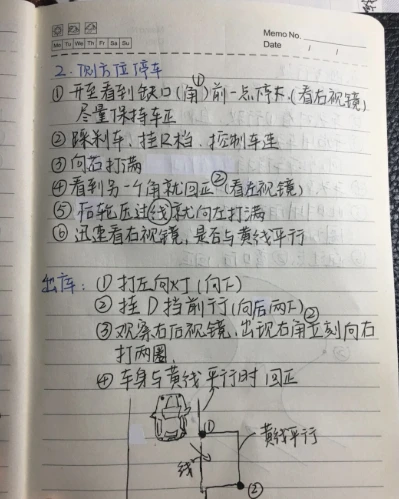 Memo No.
Mo Tu We Th Fr Sa Su
Date / /
2. 侧方位停车
①
① 开至看到缺口(角)前一点停下.(看右视镜)
尽量保持车正
② 踩刹车、挂R档、控制车速
③ 向右打满
④ 看到另一个角就回正②(看左视镜)
⑤ 后轮压过线就向左打满
⑥ 迅速看右视镜,是否与黄线平行
出库: ① 打左向灯(向下)
② 挂D挡前行(向后两下)
③ 观察右后视镜.出现右角②立刻向右
打两圈.
④ 车身与黄线平行时 回正
①
黄线平行
线
②